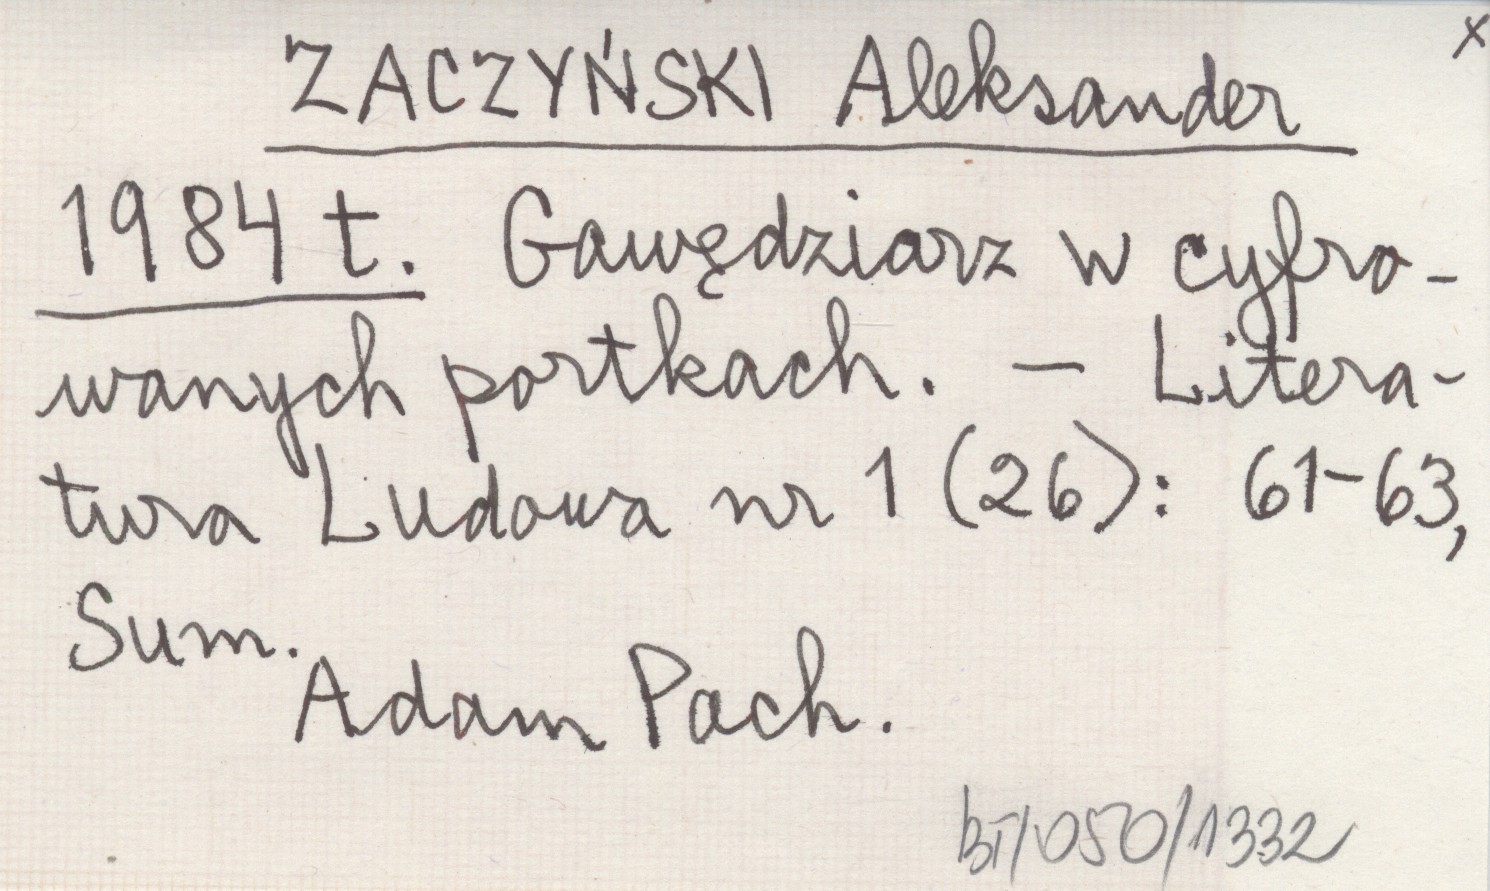 x
ZACZYŃSKI Aleksander
1984 t. Gawędziarz w cyfro-
wanych portkach. — Litera-
tura Ludowa nr 1 (26): 61-63,
Sum.
Adam Pach.
BT/050/1332